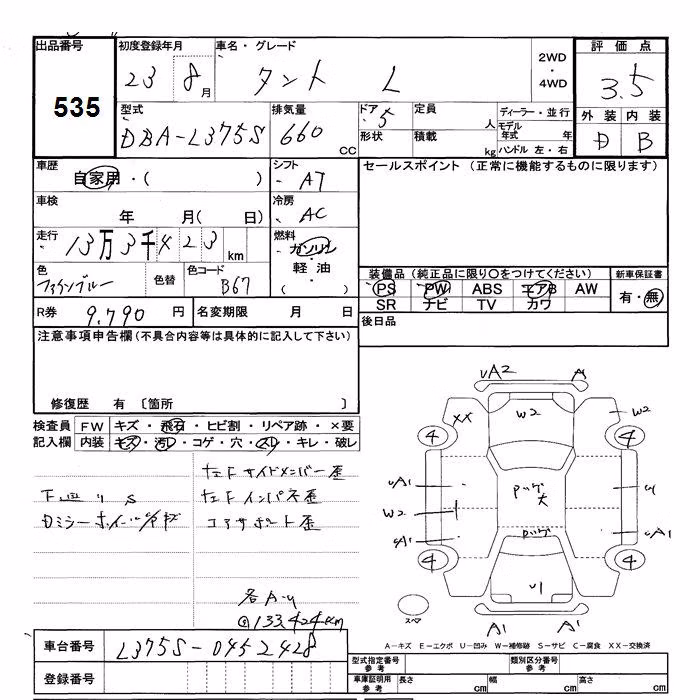 出品番号 初度登録年月 車名・グレード 2WD ・ 4WD 評価点
535 23 8月 タント L 3.5
型式 排気量 ドア 定員 ディーラー・並行 外装 内装
DBA-L375S 660 CC 5 人 モデル年式 年 D B
形状 積載 kg ハンドル 左・右
車歴 シフト セールスポイント (正常に機能するものに限ります)
自家用・( ) AT
車検 冷房
年 月( 日) AC
走行 燃料
13万3千423km ガソリン・軽油・( )
色 色替 色コード 装備品 (純正品に限り○をつけてください) 新車保証書
ファインブルー B67 PS PW ABS エアB AW 有・無
SR ナビ TV カワ
R券 9,790 円 名変期限 月 日 後日品
注意事項申告欄(不具合内容等は具体的に記入して下さい)
修復歴 有 〔箇所 〕
検査員 FW キズ・飛石・ヒビ割・リペア跡・×要
記入欄 内装 キズ・汚レ・コゲ・穴・スレ・キレ・破レ
左Fサイドメンバー歪
左Fインパネ歪
コアサポート歪
各A・U
@133,424km
UA2 A
XX W2 W2
4 4
UA1
W2
UA1 UA1
4 4
U1
スペア
A1 A1
A-キズ E-エクボ U-凹み W-補修跡 S-サビ C-腐食 XX-交換済
車台番号 L375S-0452428
登録番号
型式指定番号 参考 類別区分番号 参考
車庫証明用 参考 長さ cm 幅 cm 高さ cm